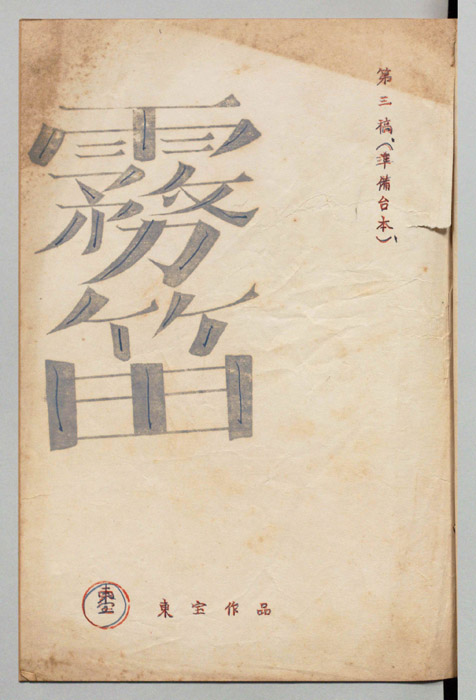 第三稿(準備台本)
霧笛
東宝
東宝作品